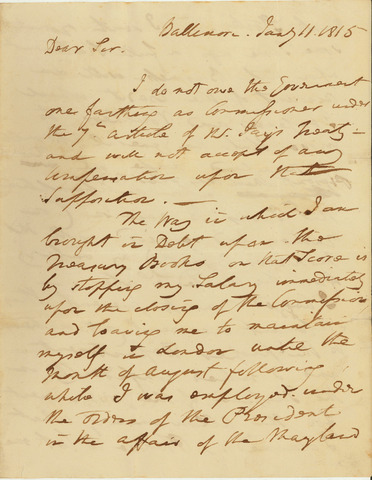 Baltimore. Jany 11. 1815
Dear Sir.
I do not owe the Government
one farthing as Commissioner under
the 7th article of Mr. Jay's Treaty –
and will not accept of any
Compensation upon that
Supposition. —
The Way in which I am
brought in Debt upon the
Treasury Books on that Score is
by stopping my Salary immediately
upon the closing of the Commission
and leaving me to maintain
myself in London until the
Month of August following
while I was employed under
the orders of the President
in the affair of the Maryland